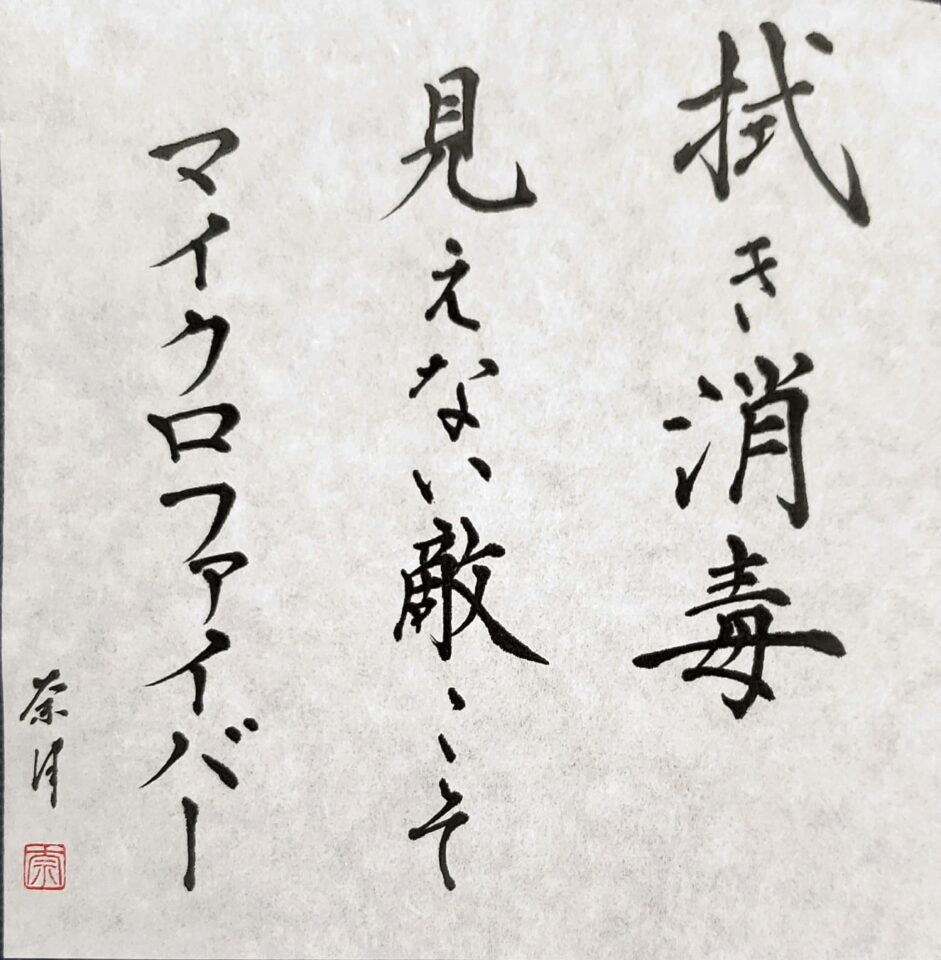 拭き消毒
見えない敵こそ
マイクロファイバー
奈津